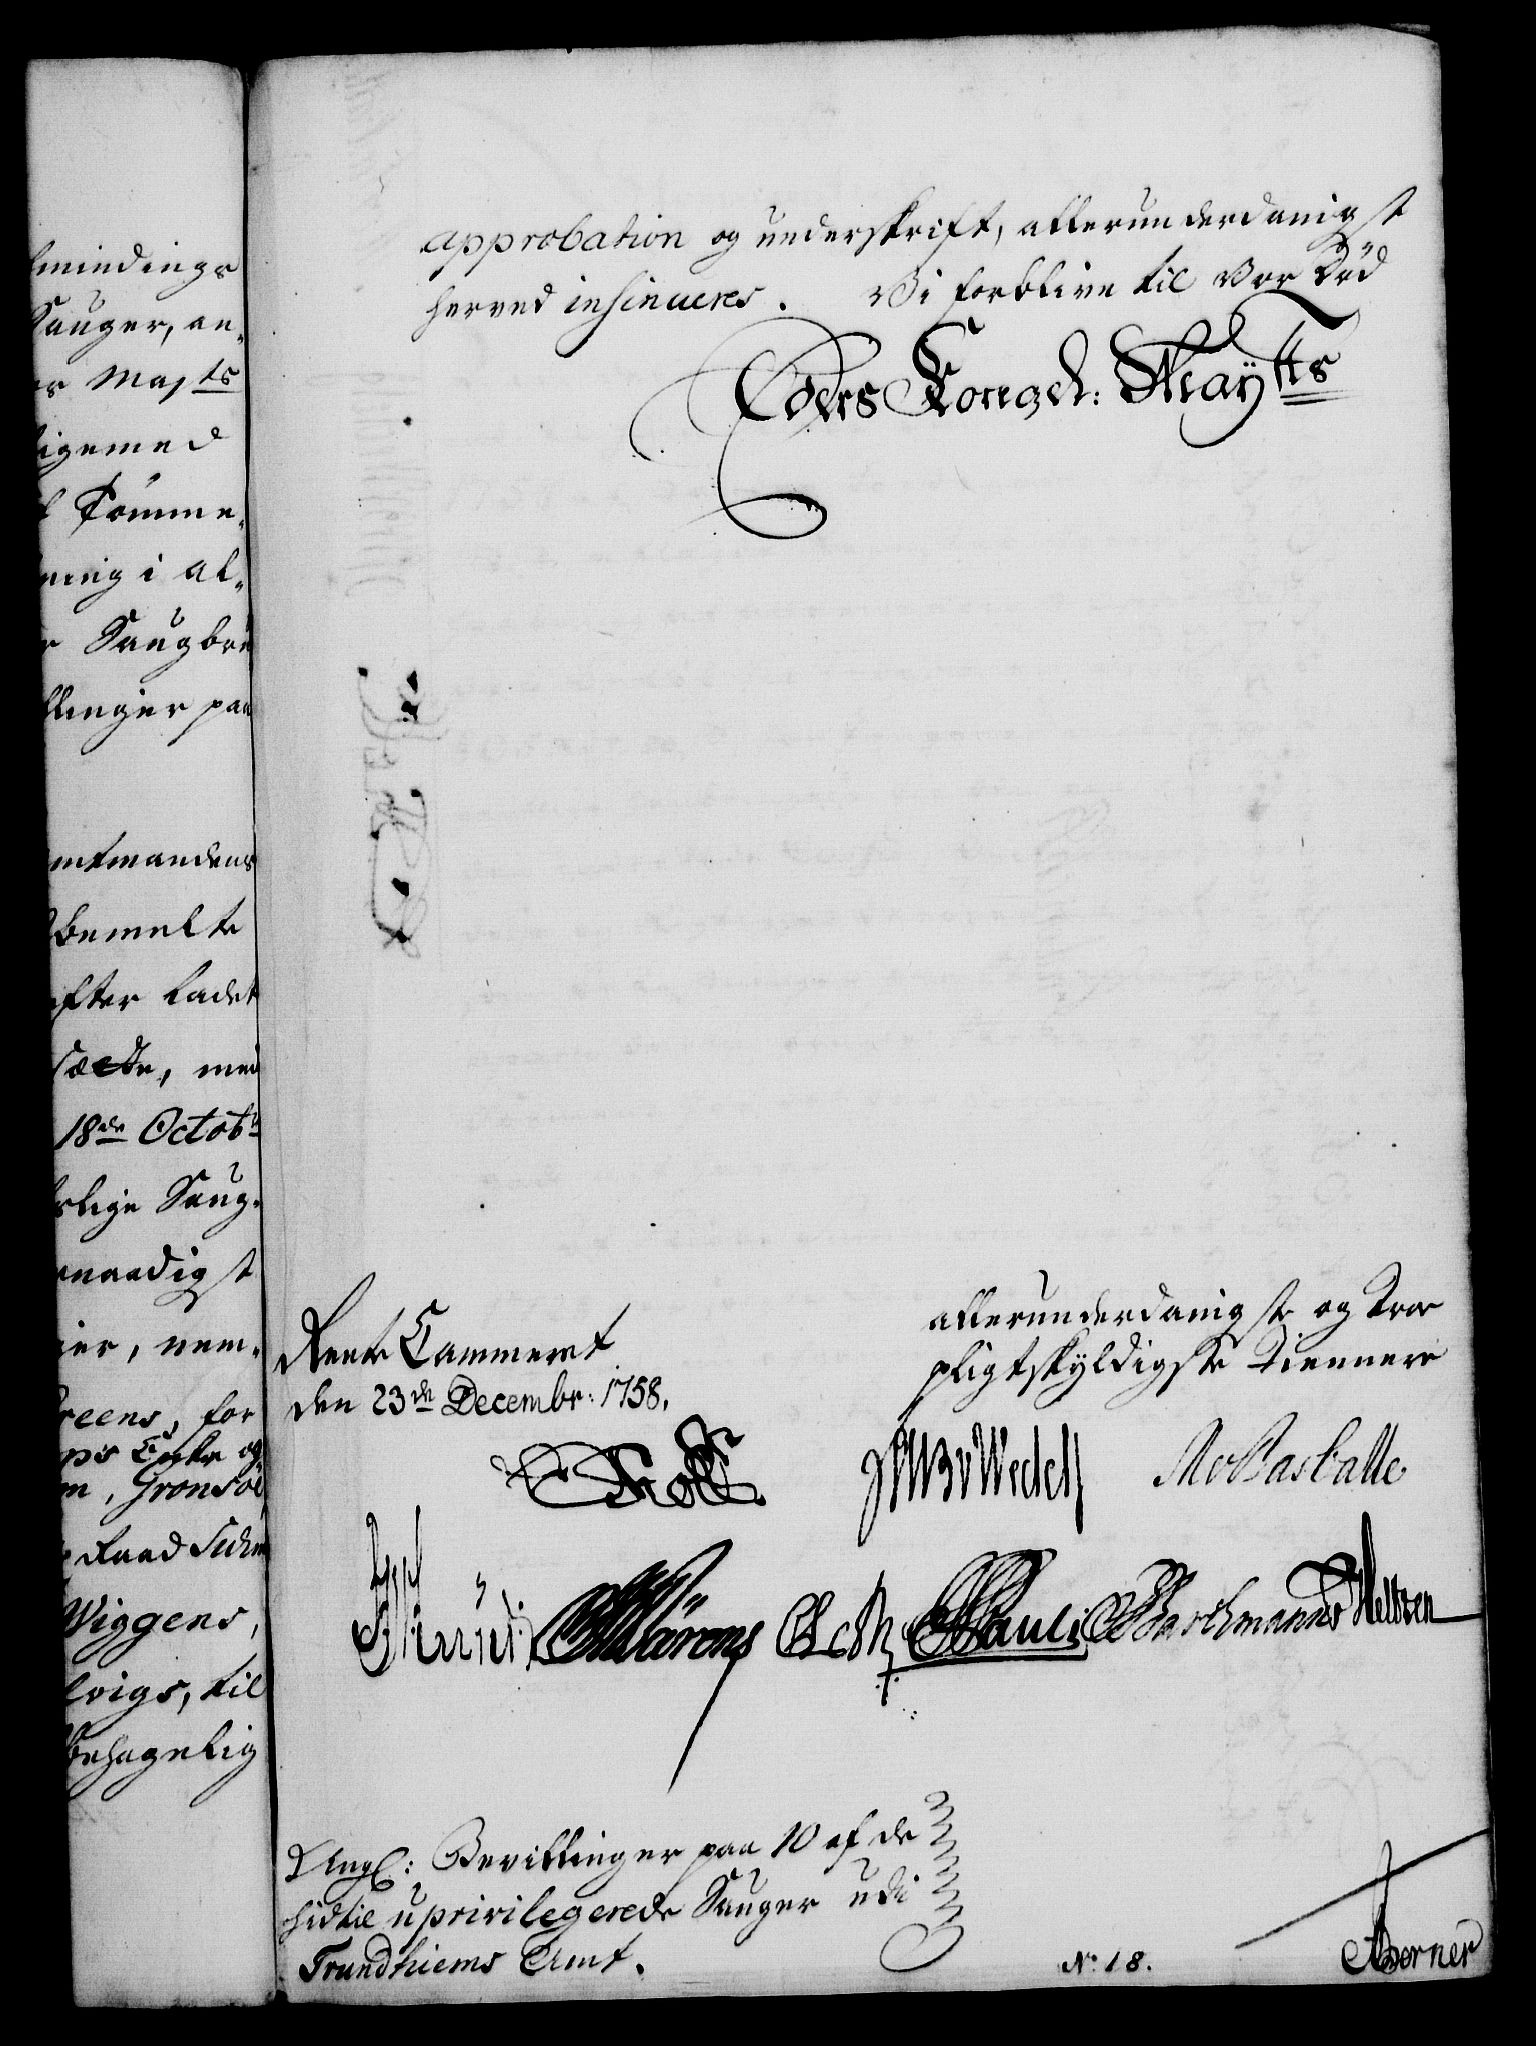 mindings
Sauger, an-
Majts
ligemed
Tømme-
ning i al-
Saugbru
llinger paa
amtmandens
bemelte
efter ladet
sætte, med
18de Octobr
Saug-
naadigst
ier, nem-
reens, for
og
Gronsøe
Raad Suhm
Wiggens,
lvigs, til
behagelig
approbation og underskrift, allerunderdanigst
herved insinueres. Vi forblive til Vor Død
Eders Kongel: Maÿtts
Rente Cammeret
den 23de Decembr: 1758.
allerunderdanigste og Troe
pligtskyldigste Tiennere
Holck
Wedell
Pauli
Barchmann Weltzen
Ang: Bevillinger paa 10 af de
hidtil uprivilegerede Sauger udi
Trundhiems Amt.
No 18.
Berner